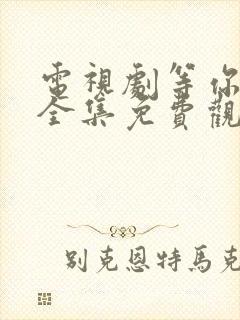 電視劇等你
全集免費觀
別克恩特馬克